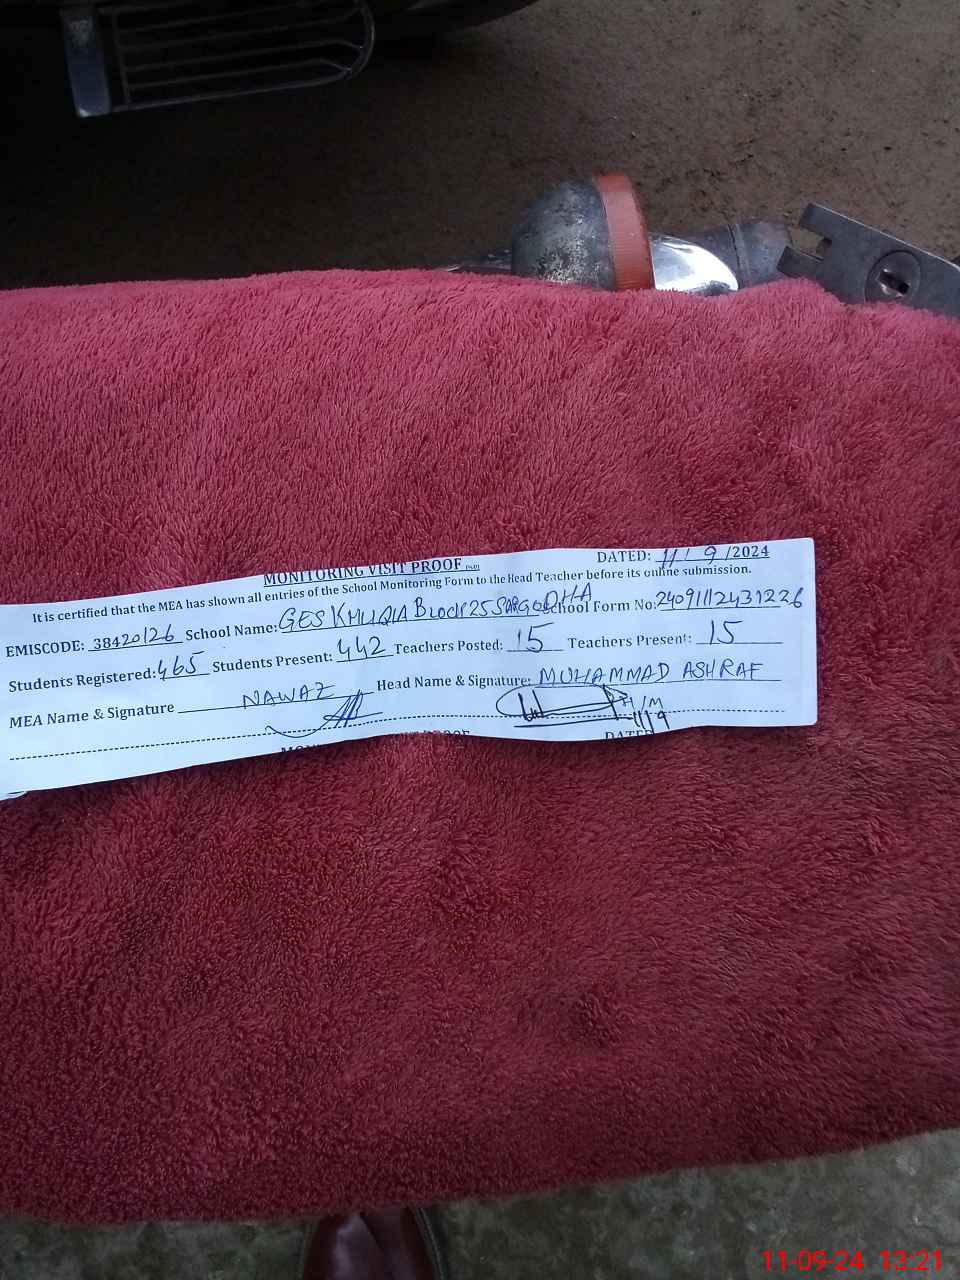 MONITORING VISIT PROOF DATED: 11/9/2024
It is certified that the MEA has shown all entries of the School Monitoring Form to the Head Teacher before its online submission.
EMISCODE: 38420126 School Name: GES KHUQIA BLOCK 25 SARGODHA School Form No: 24091112431226
Students Registered: 465 Students Present: 442 Teachers Posted: 15 Teachers Present: 15
MEA Name & Signature NAWAZ Head Name & Signature: MUHAMMAD ASHRAF
H/M
11/9
DATED
11-09-24 13:21